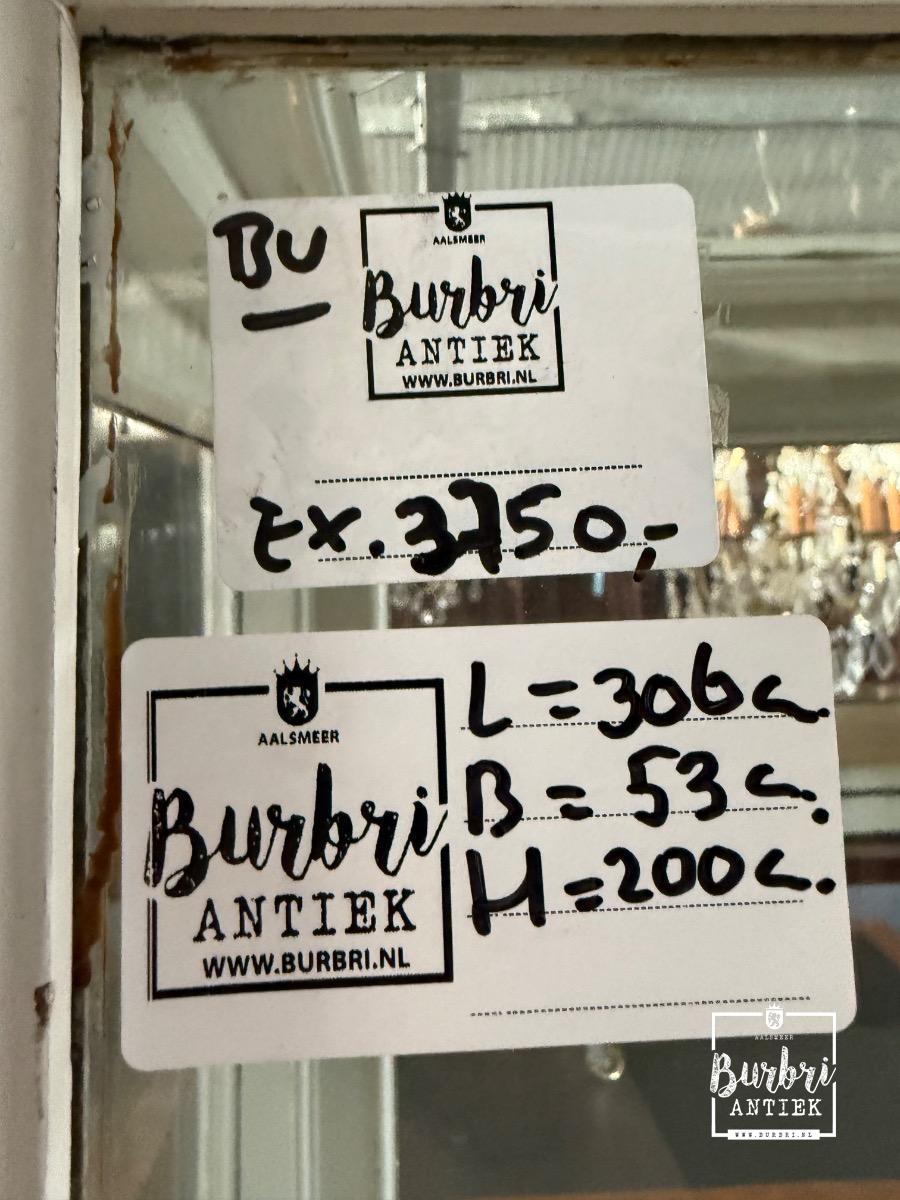 BU
AALSMEER
Burbri
ANTIEK
WWW.BURBRI.NL
Ex. 3750,-
AALSMEER
Burbri
ANTIEK
WWW.BURBRI.NL
L = 306 c.
B = 53 c.
H = 200 c.
AALSMEER
Burbri
ANTIEK
WWW.BURBRI.NL